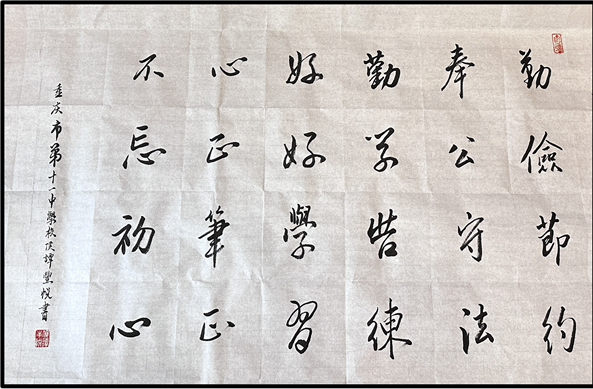 勤儉節約
奉公守法
勤学苦練
好好學習
心正筆正
不忘初心
重庆市第十一中學校書